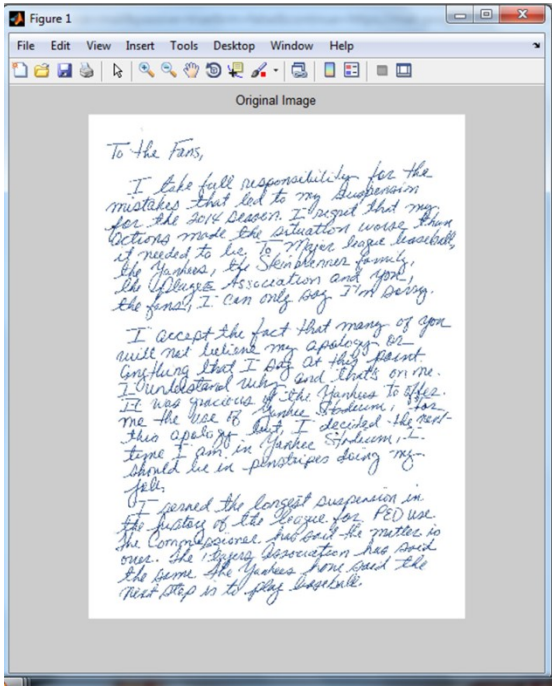 Figure 1
File Edit View Insert Tools Desktop Window Help
Original Image
To the Fans,
I take full responsibility for the
mistakes that led to my suspension
for the 2014 season. I regret that my
actions made the situation worse than
it needed to be. To Major league baseball,
the Yankees, the Steinbrenner family,
the Players Association and you,
the fans, I can only say I'm sorry.
I accept the fact that many of you
will not believe my apology or
anything that I say at this point.
I understand why and that's on me.
It was gracious of the Yankees to offer
me the use of Yankee Stadium, for
this apology but, I decided the next
time I am in Yankee Stadium, I
should be in pinstripes doing my
job.
I served the longest suspension in
the history of the league for PED use.
The Commissioner has said the matter is
over. The Players Association has said
the same. The Yankees have said the
next step is to play baseball.